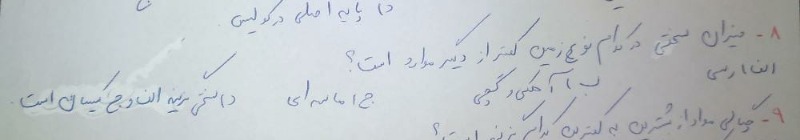 د) پایه اصلی در کولیس
۸- میزان سختی در کدام نوع زمین کمتر از دیگر موارد است؟
الف) رسی ب) آهکی و گچی ج) ماسه ای د) سختی گزینه الف و ج یکسان است.
۹- چگالی مواد از بیشترین به کمترین کدام گزینه است؟